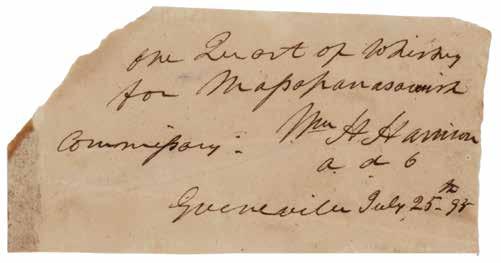 one Quart of Whiskey
for
Commissary. Wm H Harrison
a d C
Greeneville July 25th 95